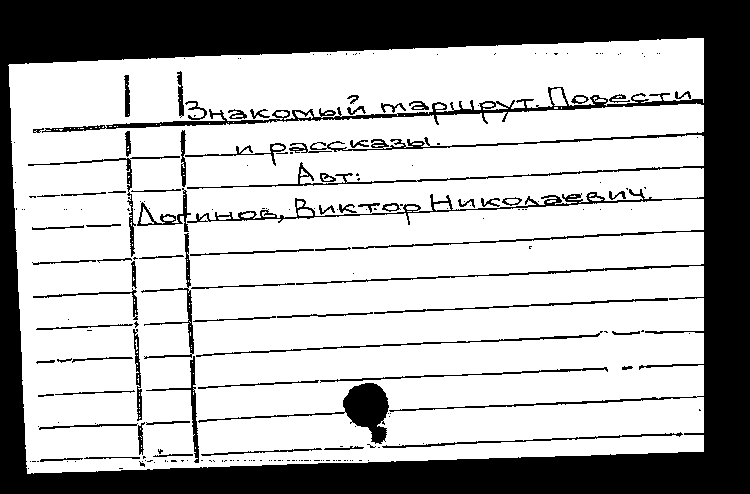 Знакомый маршрут. Повести
и рассказы.
Авт:
Логинов, Виктор Николаевич.